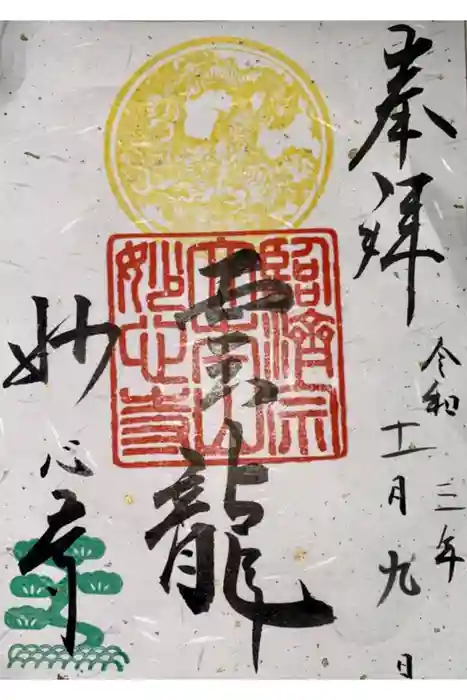 奉拝
令和三年
十一月九日
雲龍
臨済宗
正法山
妙心寺
妙心寺